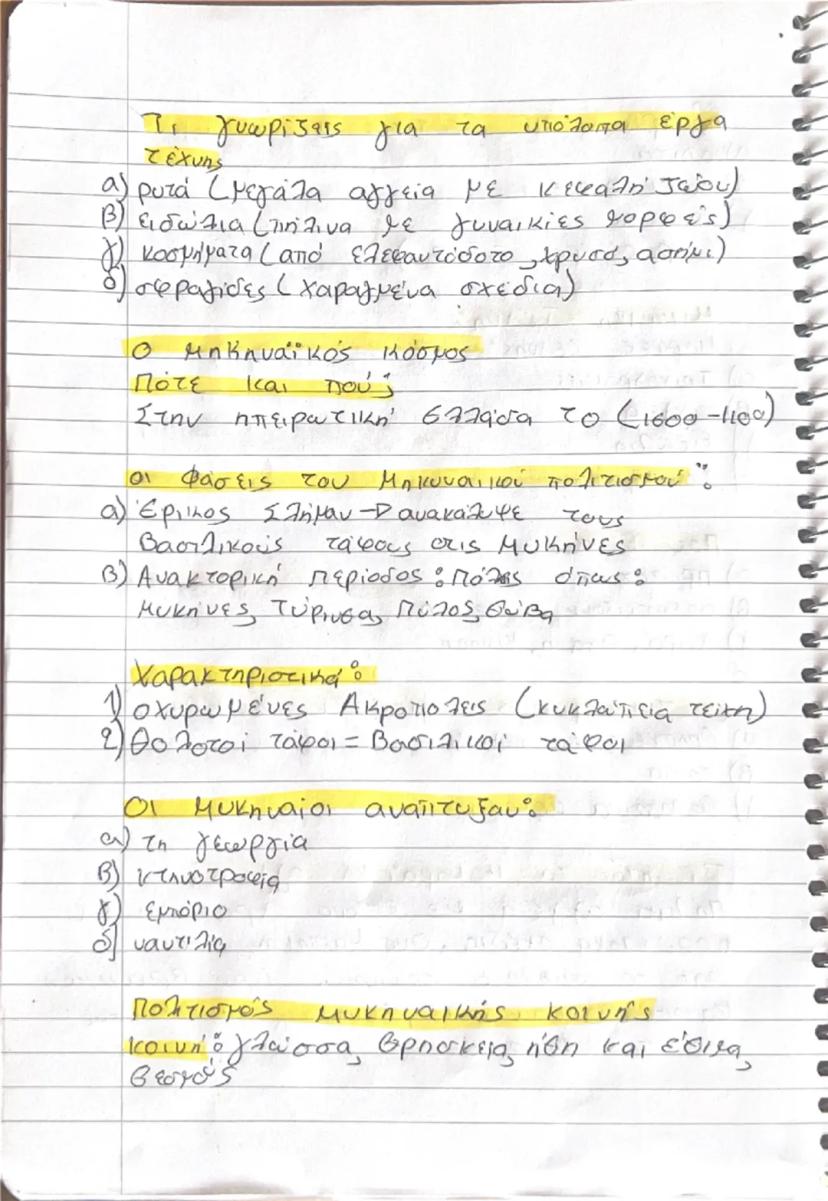 Τι γνωρίζεις για τα υπόλοιπα έργα
τέχνης
α) ρυτά (μεγάλα αγγεία με κεφαλή ζώου)
β) ειδώλια (πήλινα με γυναικίες μορφές)
γ) κοσμήματα (από ελεφαντόδοτο, χρυσό, ασήμι)
δ) σφραγίδες (χαραγμένα σχέδια)
Ο μηκηναϊκός κόσμος
Πότε και πού;
Στην ηπειρωτική Ελλάδα το (1600-1100)
οι φάσεις του Μηκυναικού πολιτισμού:
α) Έρικος Σλήμαν → ανακάλυψε τους
Βασιλικούς τάφους στις Μυκήνες
β) Ανακτορική περίοδος: Πόλεις όπως:
Μυκήνες, Τύρινσα, Πύλος, Θύβα
Χαρακτηριστικά:
1) οχυρωμένες Ακροπόλεις (κυκλώπεια τείχη)
2) Θολοτοί τάφοι = Βασιλικοί τάφοι
Οι Μυκηναίοι ανάπτυξαν:
α) τη γεωργία
β) κτηνοτροφία
γ) εμπόριο
δ) ναυτιλία
Πολιτισμός μυκηναικής κοινής
κοινή: γλώσσα, θρησκεία, ήθη και έθιμα,
θεσμούς